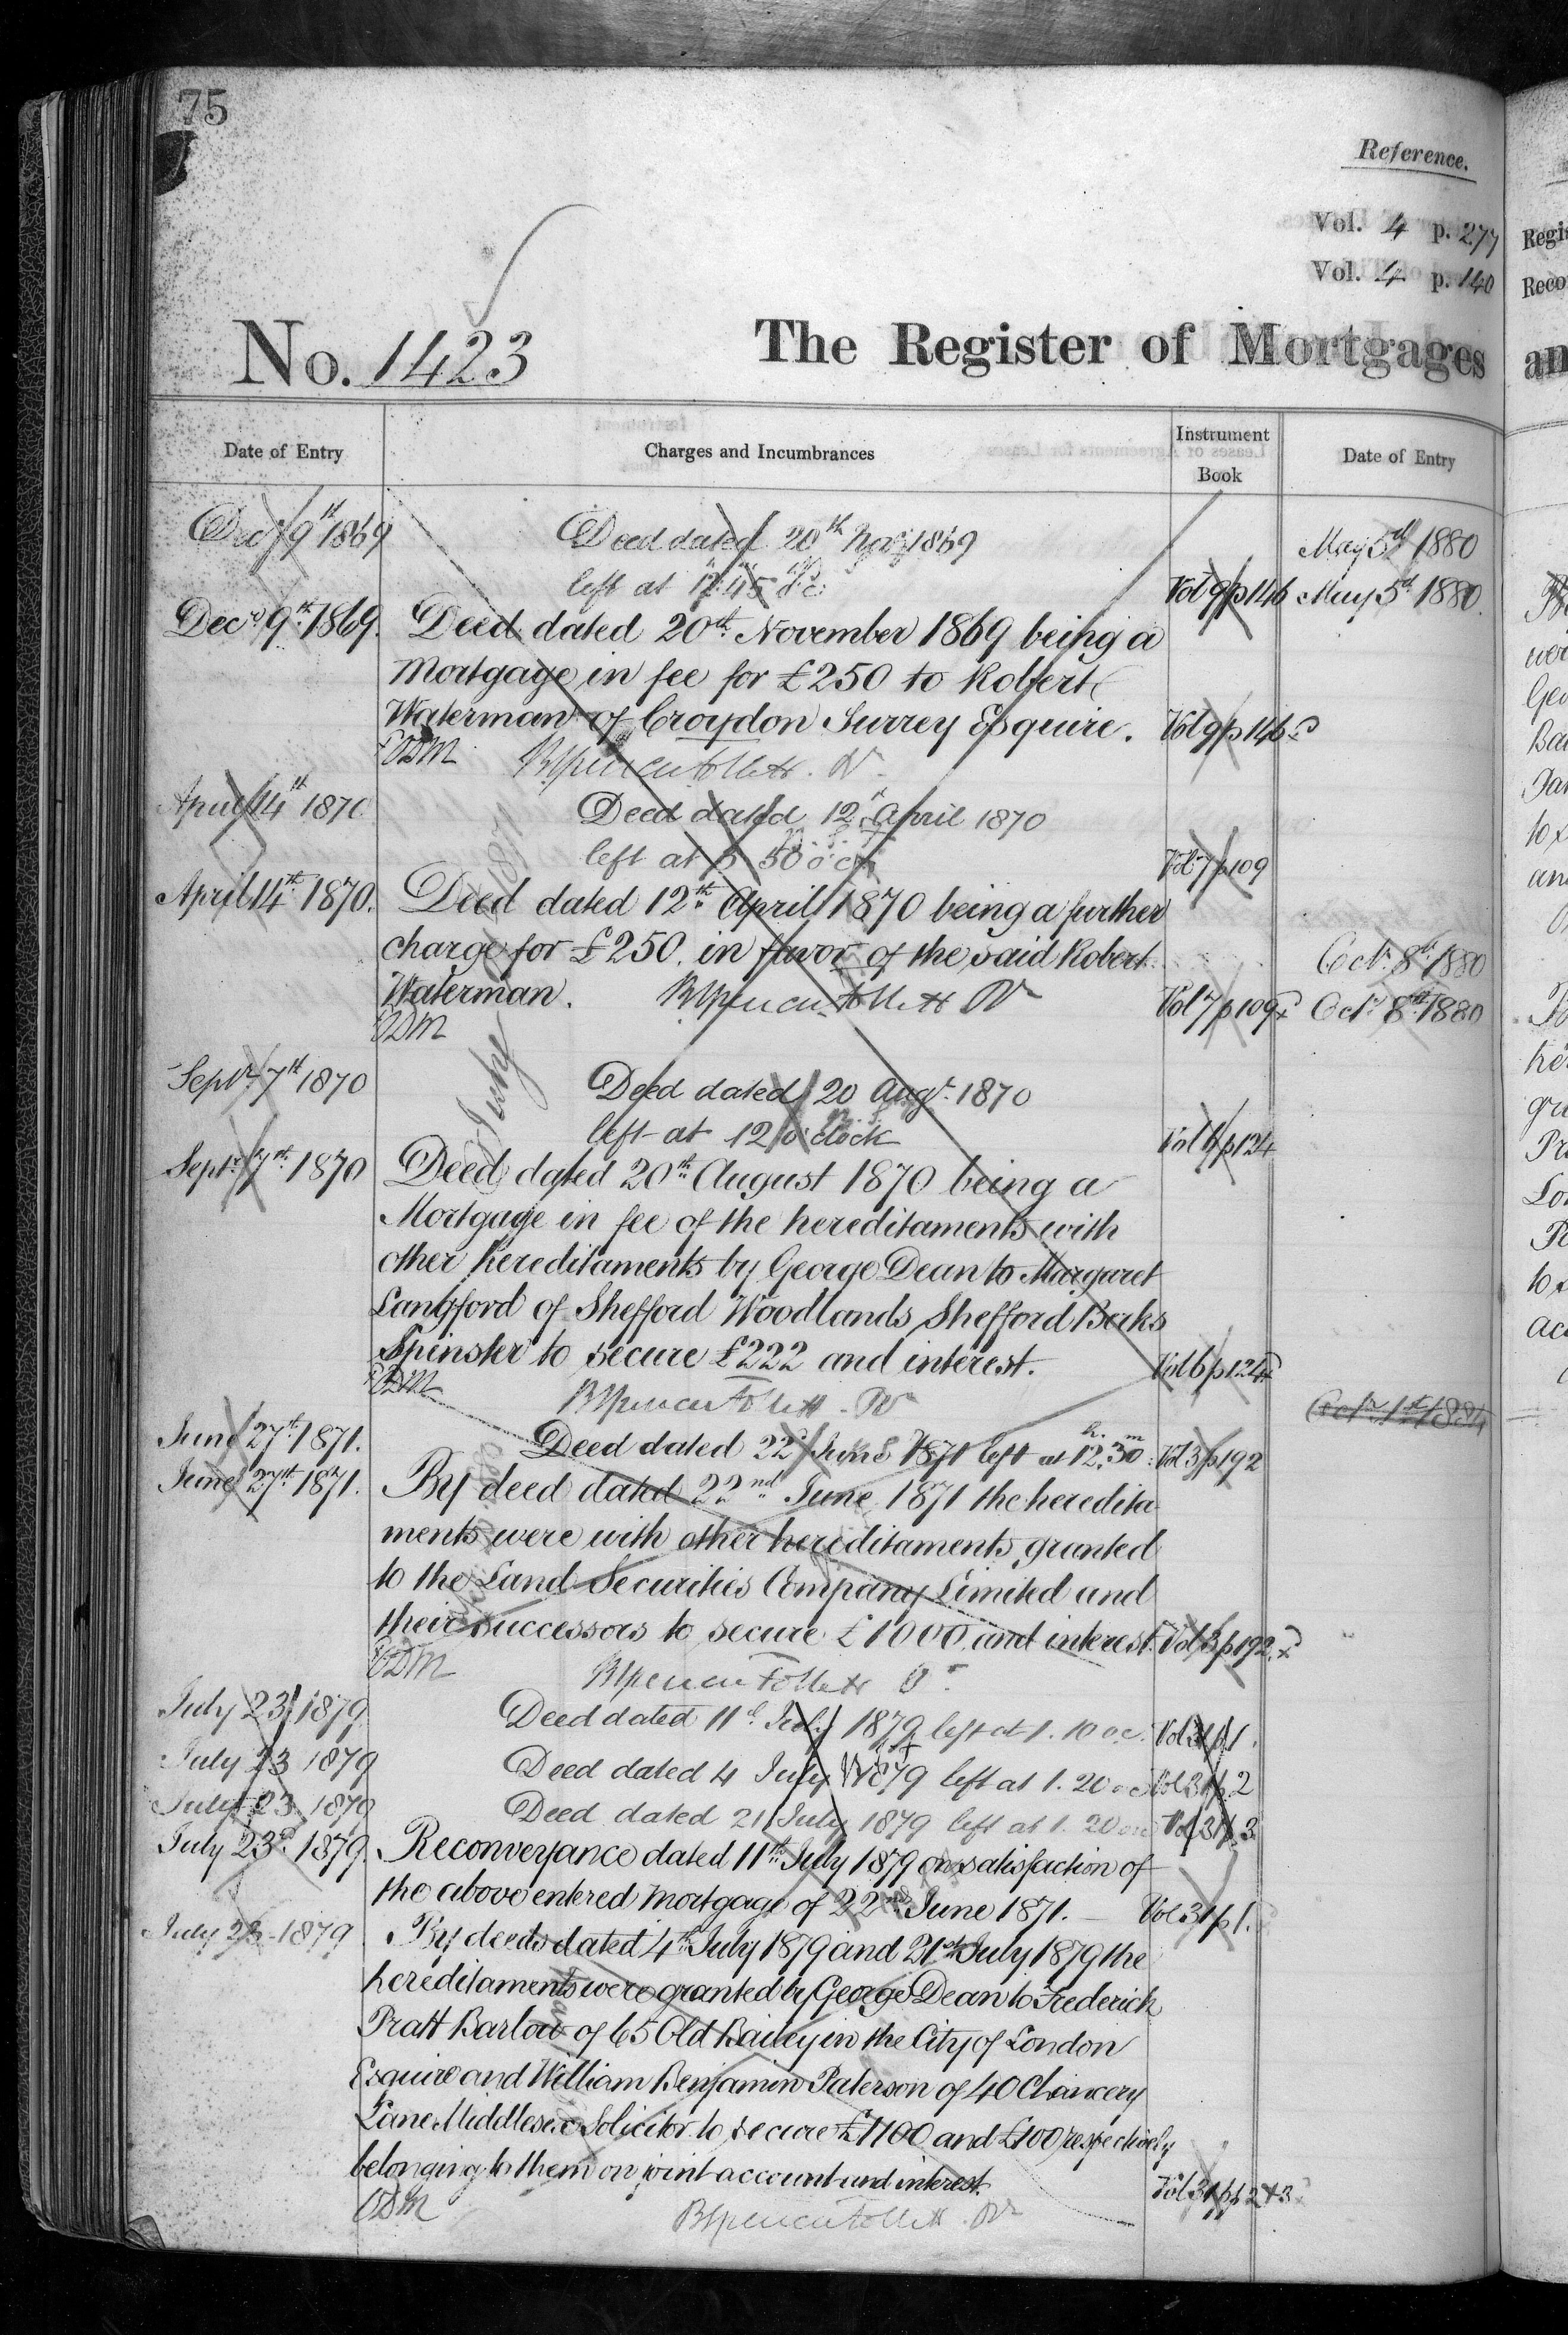 75
Reference.
Vol. 4 p. 277
Vol. 4 p. 140
No. 1423
The Register of Mortgages
Date of Entry
Charges and Incumbrances
Instrument Book
Date of Entry
Decr 9th 1869
Deed dated 20th Novr 1869
May 5th 1880
left at 12.45 o'c
Vol 9 p 146
May 5th 1880.
Decr 9th 1869.
Deed dated 20th November 1869 being a
Mortgage in fee for £250 to Robert
Waterman of Croydon Surrey Esquire.
Vol 9 p 146
EDM
BSpencer Follett. Rr
April 14th 1870
Deed dated 12th April 1870
left at 50 o'c
Vol 7 p 109
April 14th 1870.
Deed dated 12th April 1870 being a further
charge for £250. in favor of the said Robert
Octr 8th 1880
Waterman.
BSpencer Follett Rr
Vol 7 p 109
Octr 8th 1880
EDM
Septr 7th 1870
Deed dated 20 Augt 1870
left at 12 o'clock
Vol 6 p 124
Septr 7th 1870
Deed dated 20th August 1870 being a
Mortgage in fee of the hereditaments with
other hereditaments by George Dean to Margaret
Langford of Shefford Woodlands Shefford Berks
Spinster to secure £222 and interest.
Vol 6 p 124
EDM
BSpencer Follett. Rr
Octr 1st 1884
June 27th 1871.
Deed dated 22d June 1871 left at 12h.30m
Vol 3 p 192
June 27th 1871.
By deed dated 22nd June 1871 the heredita-
ments were with other hereditaments granted
to the Land Securities Company Limited and
their successors to secure £1000 and interest.
Vol 3 p 192.
EDM
BSpencer Follett Rr
July 23 1879
Deed dated 11th July 1879 left at 1.10 o.c.
Vol 31 p 1.
July 23 1879
Deed dated 4 July 1879 left at 1.20 o c
Vol 31 p. 2
July 23 1879
Deed dated 21 July 1879 left at 1.20 o c
Vol 31 p. 3
July 23d 1879.
Reconveyance dated 11th July 1879 on satisfaction of
the above entered mortgage of 22nd June 1871. —
Vol 31 p 1.
July 23 1879
By deeds dated 4th July 1879 and 21st July 1879 the
hereditaments were granted by George Dean to Frederick
Pratt Barlow of 65 Old Bailey in the City of London
Esquire and William Benjamin Paterson of 40 Chancery
Lane Middlesex Solicitor to secure £1100 and £100 respectively
belonging to them on joint account and interest.
Vol 31 pp 2 + 3
EDM
BSpencer Follett. Rr